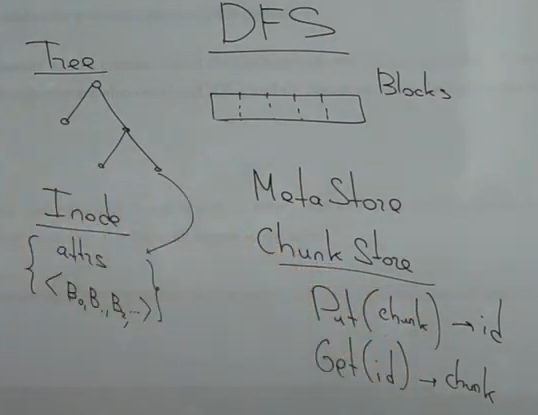 DFS
Tree
Blocks
Inode
{ attrs
<B₀, B₁, B₂, ...> }
MetaStore
Chunk Store
Put(chunk) → id
Get(id) → chunk